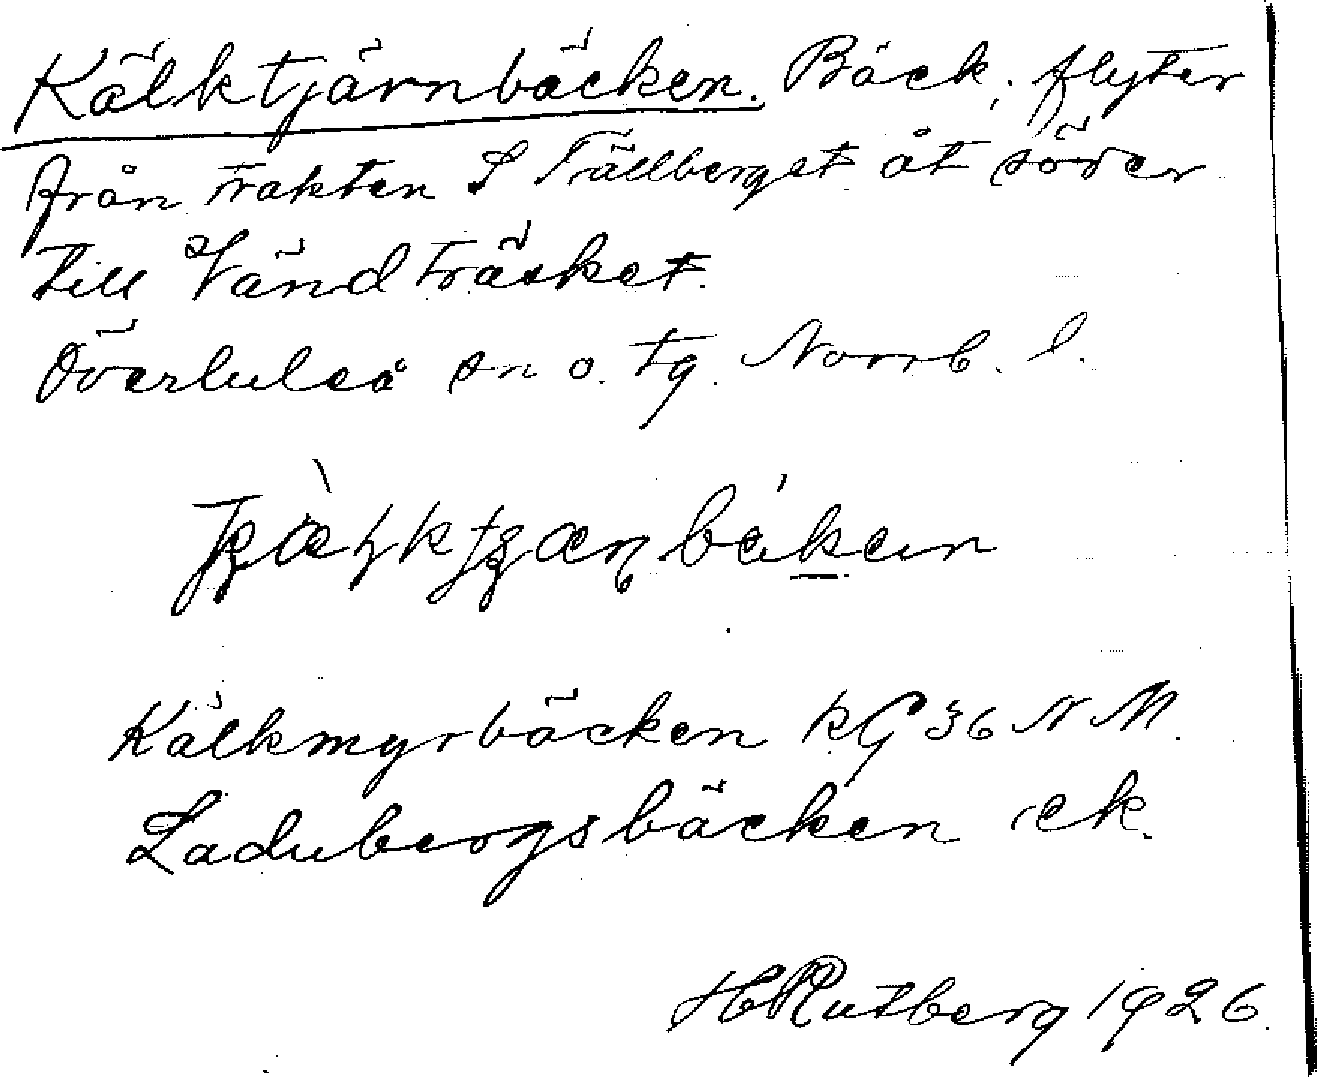 Kälktjärnbäcken. Bäck, flyter
från trakten S Trällberget åt söder
till Vändträsket.
Överluleå sn o. tg. Norrb. l.
Kälkmyrbäcken kG 36 NM.
Ladubergsbäcken ek.
H Rutberg 1926.